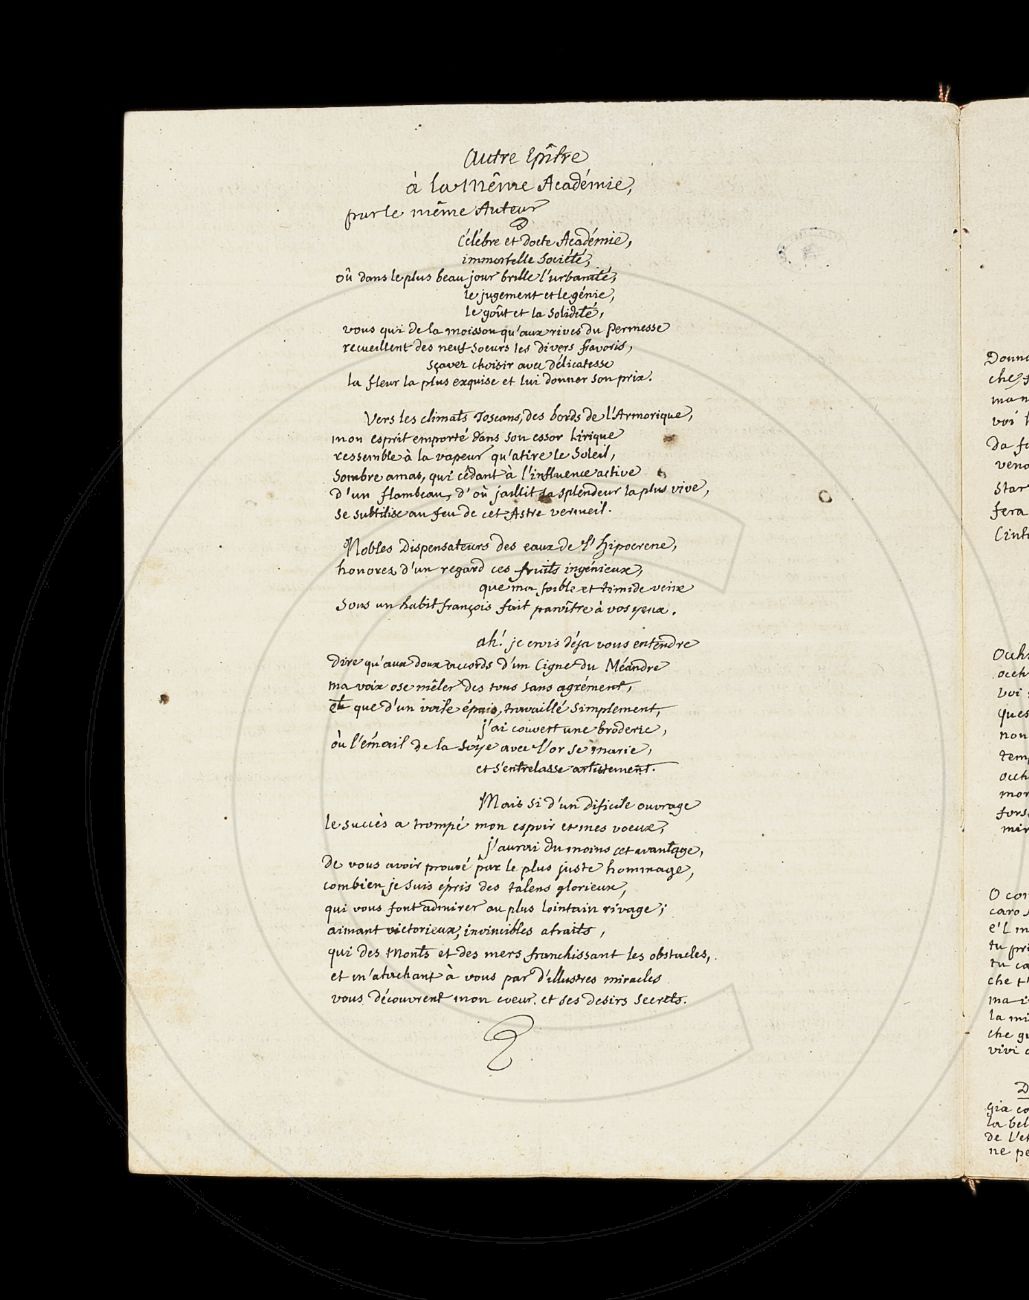 Autre Epître
à la même Académie,
par le même Auteur
Célébre et docte Académie,
immortelle Société,
où dans le plus beau jour brille l'urbanité,
le jugement et le génie,
le goût et la solidité,
vous qui de la moisson qu'aux rives du Permesse
recueillent des neuf Soeurs les divers favoris,
sçavez choisir avec délicatesse
la fleur la plus exquise et lui donner son prix.
Vers les climats Toscans, des bords de l'Armorique,
mon esprit emporté dans son essor lirique
ressemble à la vapeur qu'atire le Soleil,
Sombre amas, qui cédant à l'influence active
d'un flambeau, d'où jaillit la splendeur la plus vive,
se subtilise au feu de cet Astre vermeil.
Nobles dispensateurs des eaux de l'hipocrene,
honorez d'un regard ces fruits ingénieux,
que ma foible et timide veine
Sous un habit françois fait paroître à vos yeux.
ah! je crois déja vous entendre
dire qu'aux doux accords d'un Cigne du Méandre
ma voix ose mêler des tons sans agrément,
et que d'un voile épais, travaillé simplement,
j'ai couvert une broderie,
où l'émail de la soÿe avec l'or se marie,
et s'entrelasse artistement.
Mais si d'un dificile ouvrage
le succès a trompé mon espoir et mes voeux,
j'aurai du moins cet avantage,
de vous avoir prouvé par le plus juste hommage,
combien je suis épris des talens glorieux,
qui vous font admirer au plus lointain rivage;
aimant victorieux, invincibles atraits,
qui des Monts et des mers franchissant les obstacles,
et m'atachant à vous par d'illustres miracles
vous découvrent mon coeur, et ses desirs secrets.
Donn
che
man
voi
Da f
veno
Star
fera
L'int
Occh
occh
voi
ques
non
temp
occh
mor
fors
mir
O co
caro
e'l m
tu pr
tu ca
che t
ma i
la mi
che q
vivi
D
Gia co
la bel
de l'e
ne pe